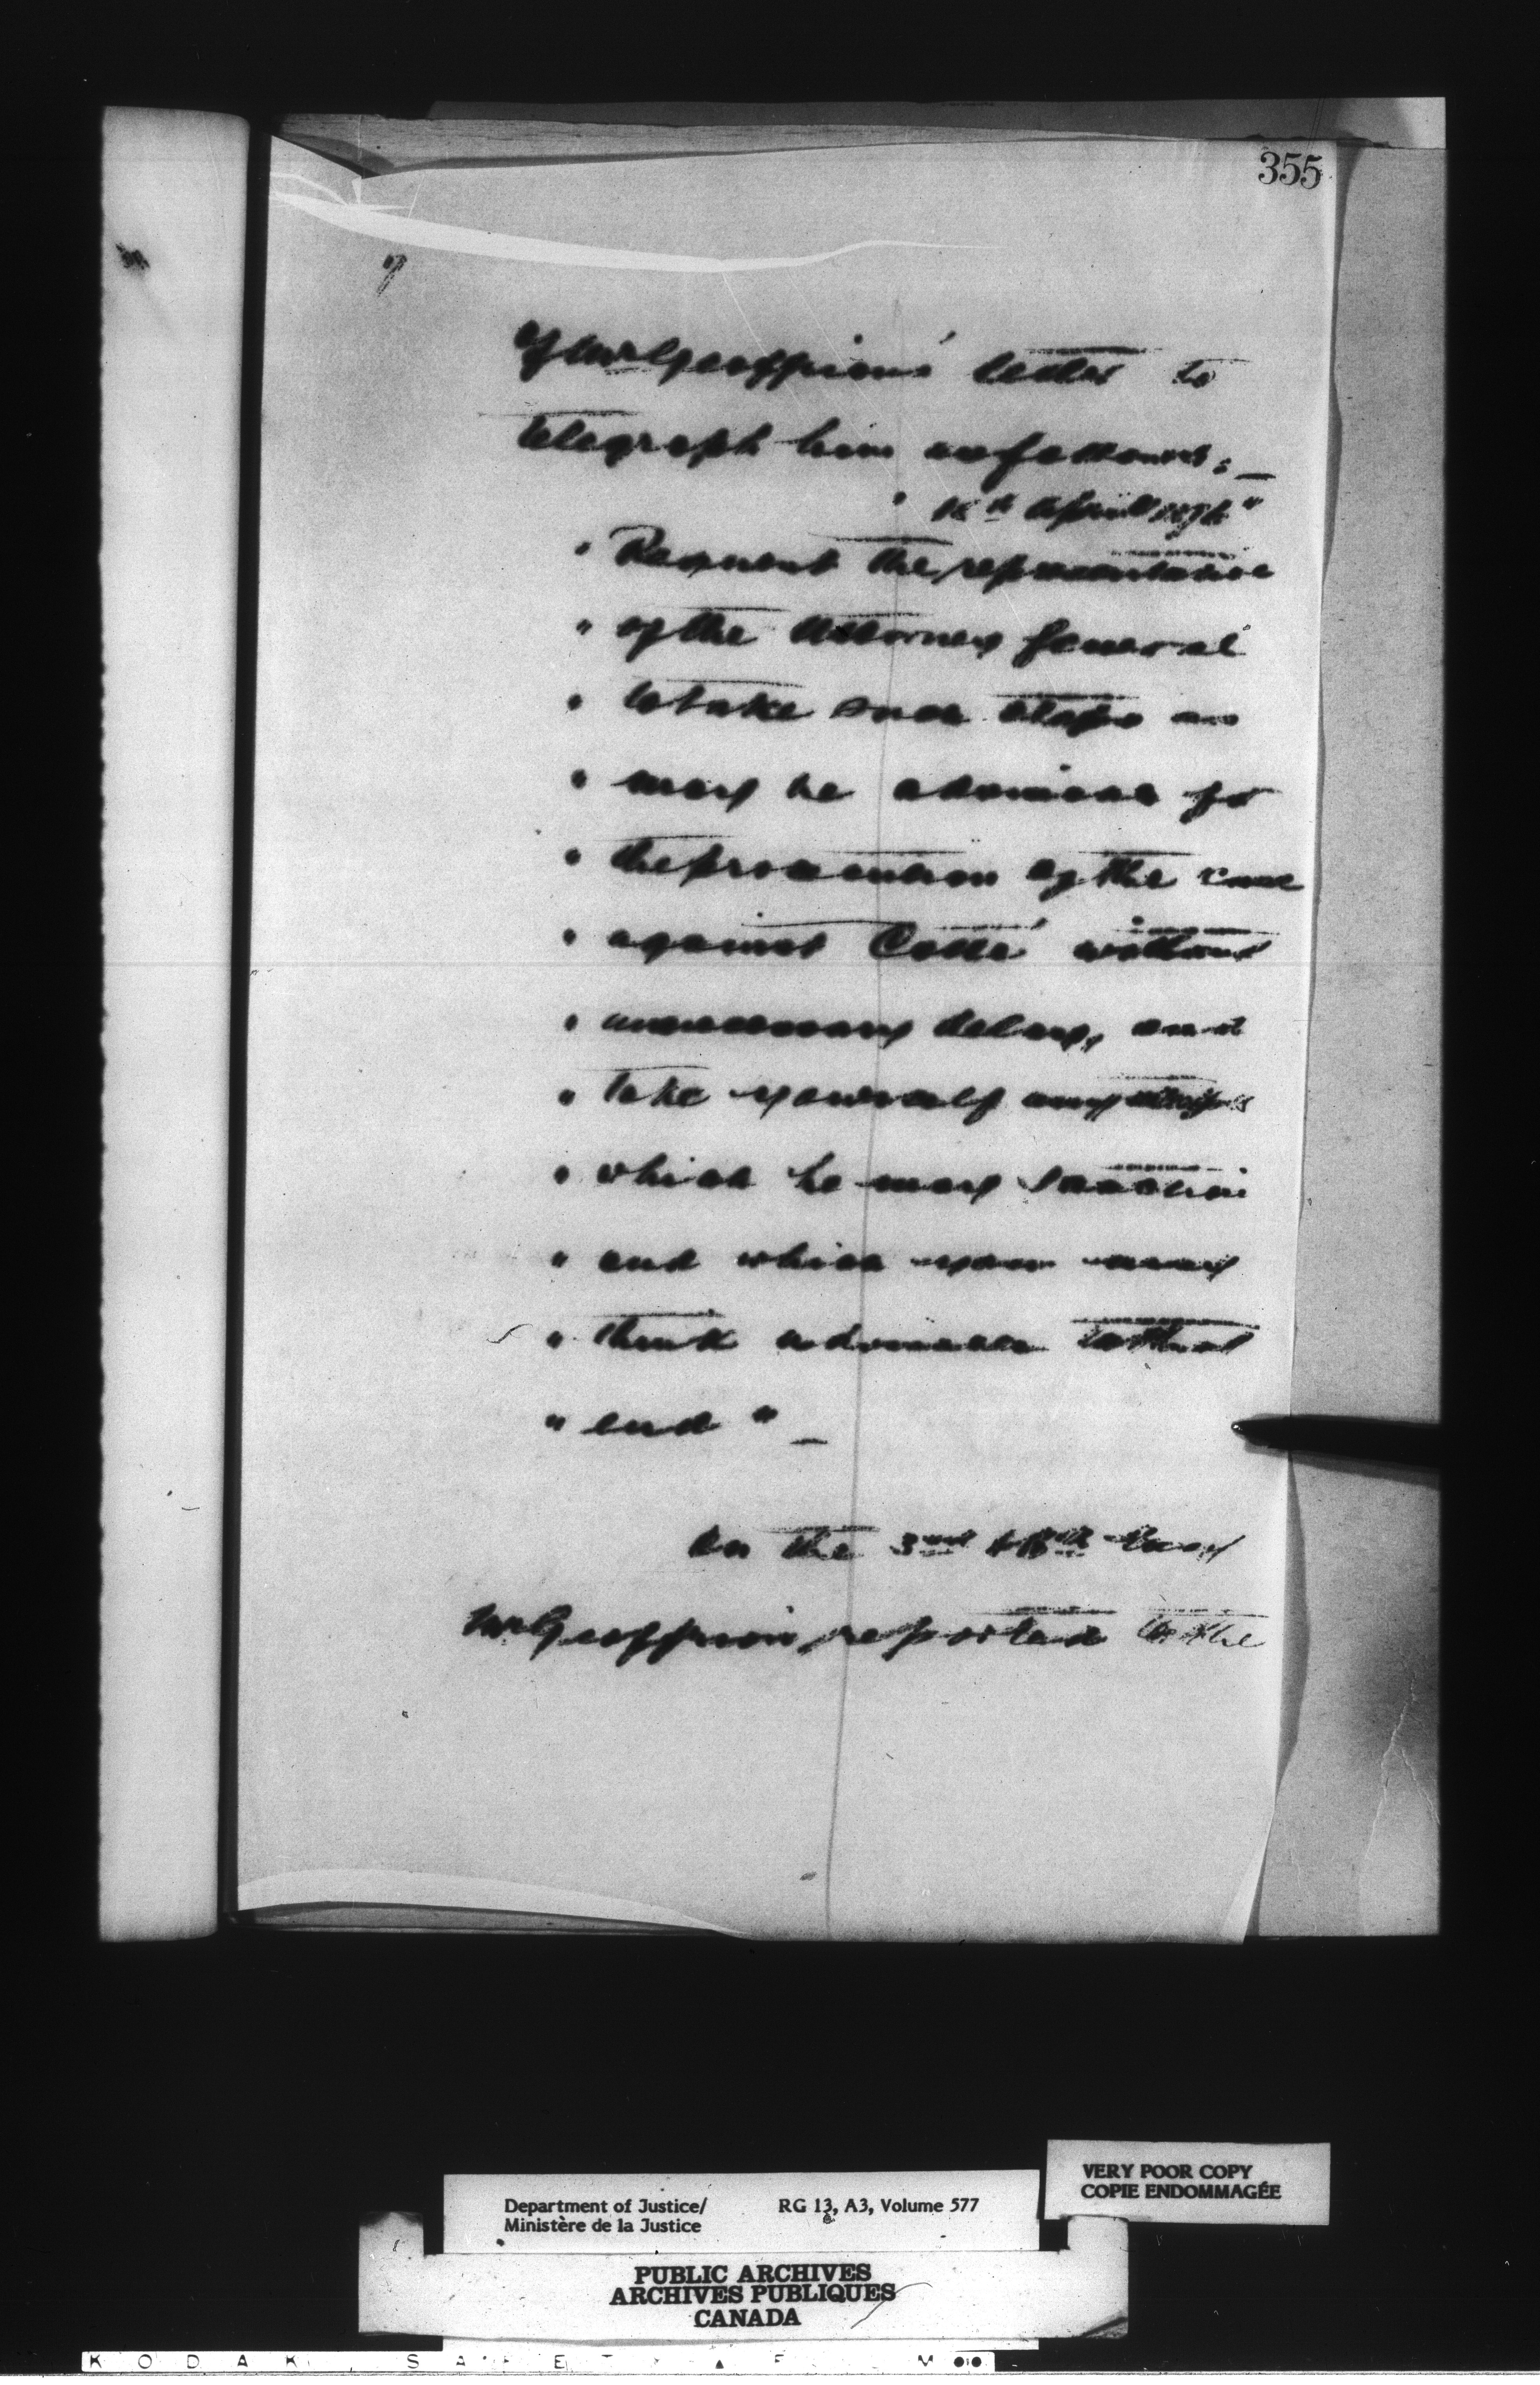 355
7
of Mr Geoffrion's letter to
telegraph him as follows:_
April 1876"
" Request the representative
" of the Attorney General
" to take such steps as
" may be advisable for
" the prosecution of the case
" against Cotté without
" unnecessary delay, and
" take yourself any steps
" which he may sanction
" and which you may
" think advisable to that
" end " _
On the 3rd & May
Mr Geoffrion reported to the
VERY POOR COPY
COPIE ENDOMMAGÉE
Department of Justice/ RG 13, A3, Volume 577
Ministère de la Justice
PUBLIC ARCHIVES
ARCHIVES PUBLIQUES
CANADA
KODAK SAFETY FILM